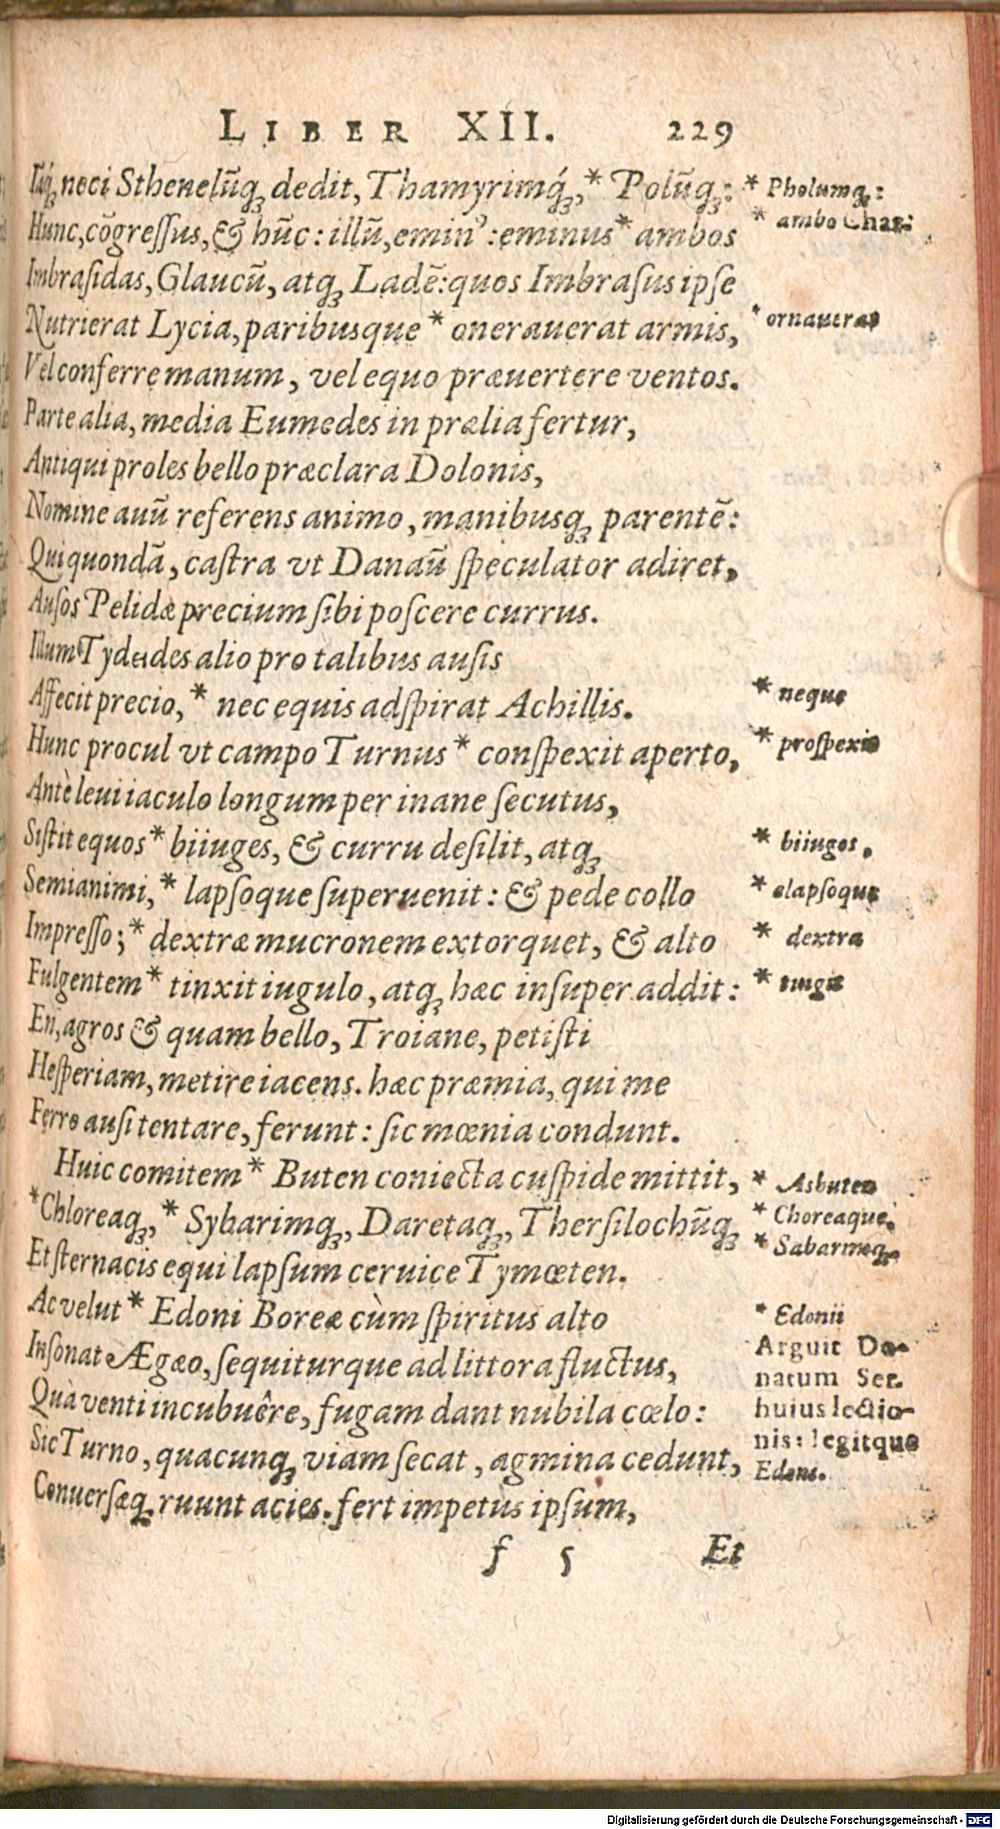 LIBER XII. 229
Iāq́ꝫ neci Sthenelũqꝫ dedit, Thamyrimq́ꝫ, * Polũqꝫ:
Hunc, cõgressus, & hũc: illũ, emin9: eminus * ambos
Imbrasidas, Glaucũ, atqꝫ Ladẽ: quos Imbrasus ipse
Nutrierat Lycia, paribusque * onerauerat armis,
Vel conferre manum, vel equo præuertere ventos.
Parte alia, media Eumedes in prælia fertur,
Antiqui proles bello præclara Dolonis,
Nomine auũ referens animo, manibusqꝫ parentẽ:
Qui quondã, castra vt Danaũ speculator adiret,
Ausos Pelidæ precium sibi poscere currus.
Illum Tydeides alio pro talibus ausis
Affecit precio, * nec equis adspirat Achillis.
Hunc procul vt campo Turnus * conspexit aperto,
Antè leui iaculo longum per inane secutus,
Sistit equos * biiuges, & curru desilit, atqꝫ
Semianimi, * lapsoque superuenit: & pede collo
Impresso; * dextræ mucronem extorquet, & alto
Fulgentem * tinxit iugulo, atqꝫ hæc insuper addit:
En, agros & quam bello, Troiane, petisti
Hesperiam, metire iacens. hæc præmia, qui me
Ferro ausi tentare, ferunt: sic mœnia condunt.
Huic comitem * Buten coniecta cuspide mittit,
* Chloreaqꝫ, * Sybarimqꝫ, Daretaqꝫ, Thersilochũqꝫ
Et sternacis equi lapsum ceruice Tymœten.
Ac velut * Edoni Boreæ cùm spiritus alto
Insonat Ægæo, sequiturque ad littora fluctus,
Quà venti incubuêre, fugam dant nubila cœlo:
Sic Turno, quacunqꝫ viam secat, agmina cedunt,
Conuersæqꝫ ruunt acies. fert impetus ipsum,
f 5 Et
* Pholumqꝫ:
* ambo Char:
* ornauerat
* neque
* prospexit
* biiugos,
* elapsoque
* dextra
* tingit
* Asbuten
* Choreaque,
* Sabarimqꝫ
* Edonii
Arguit Do-
natum Ser.
huius lectio-
nis: legitque
Edoni.
Digitalisierung gefördert durch die Deutsche Forschungsgemeinschaft - DFG